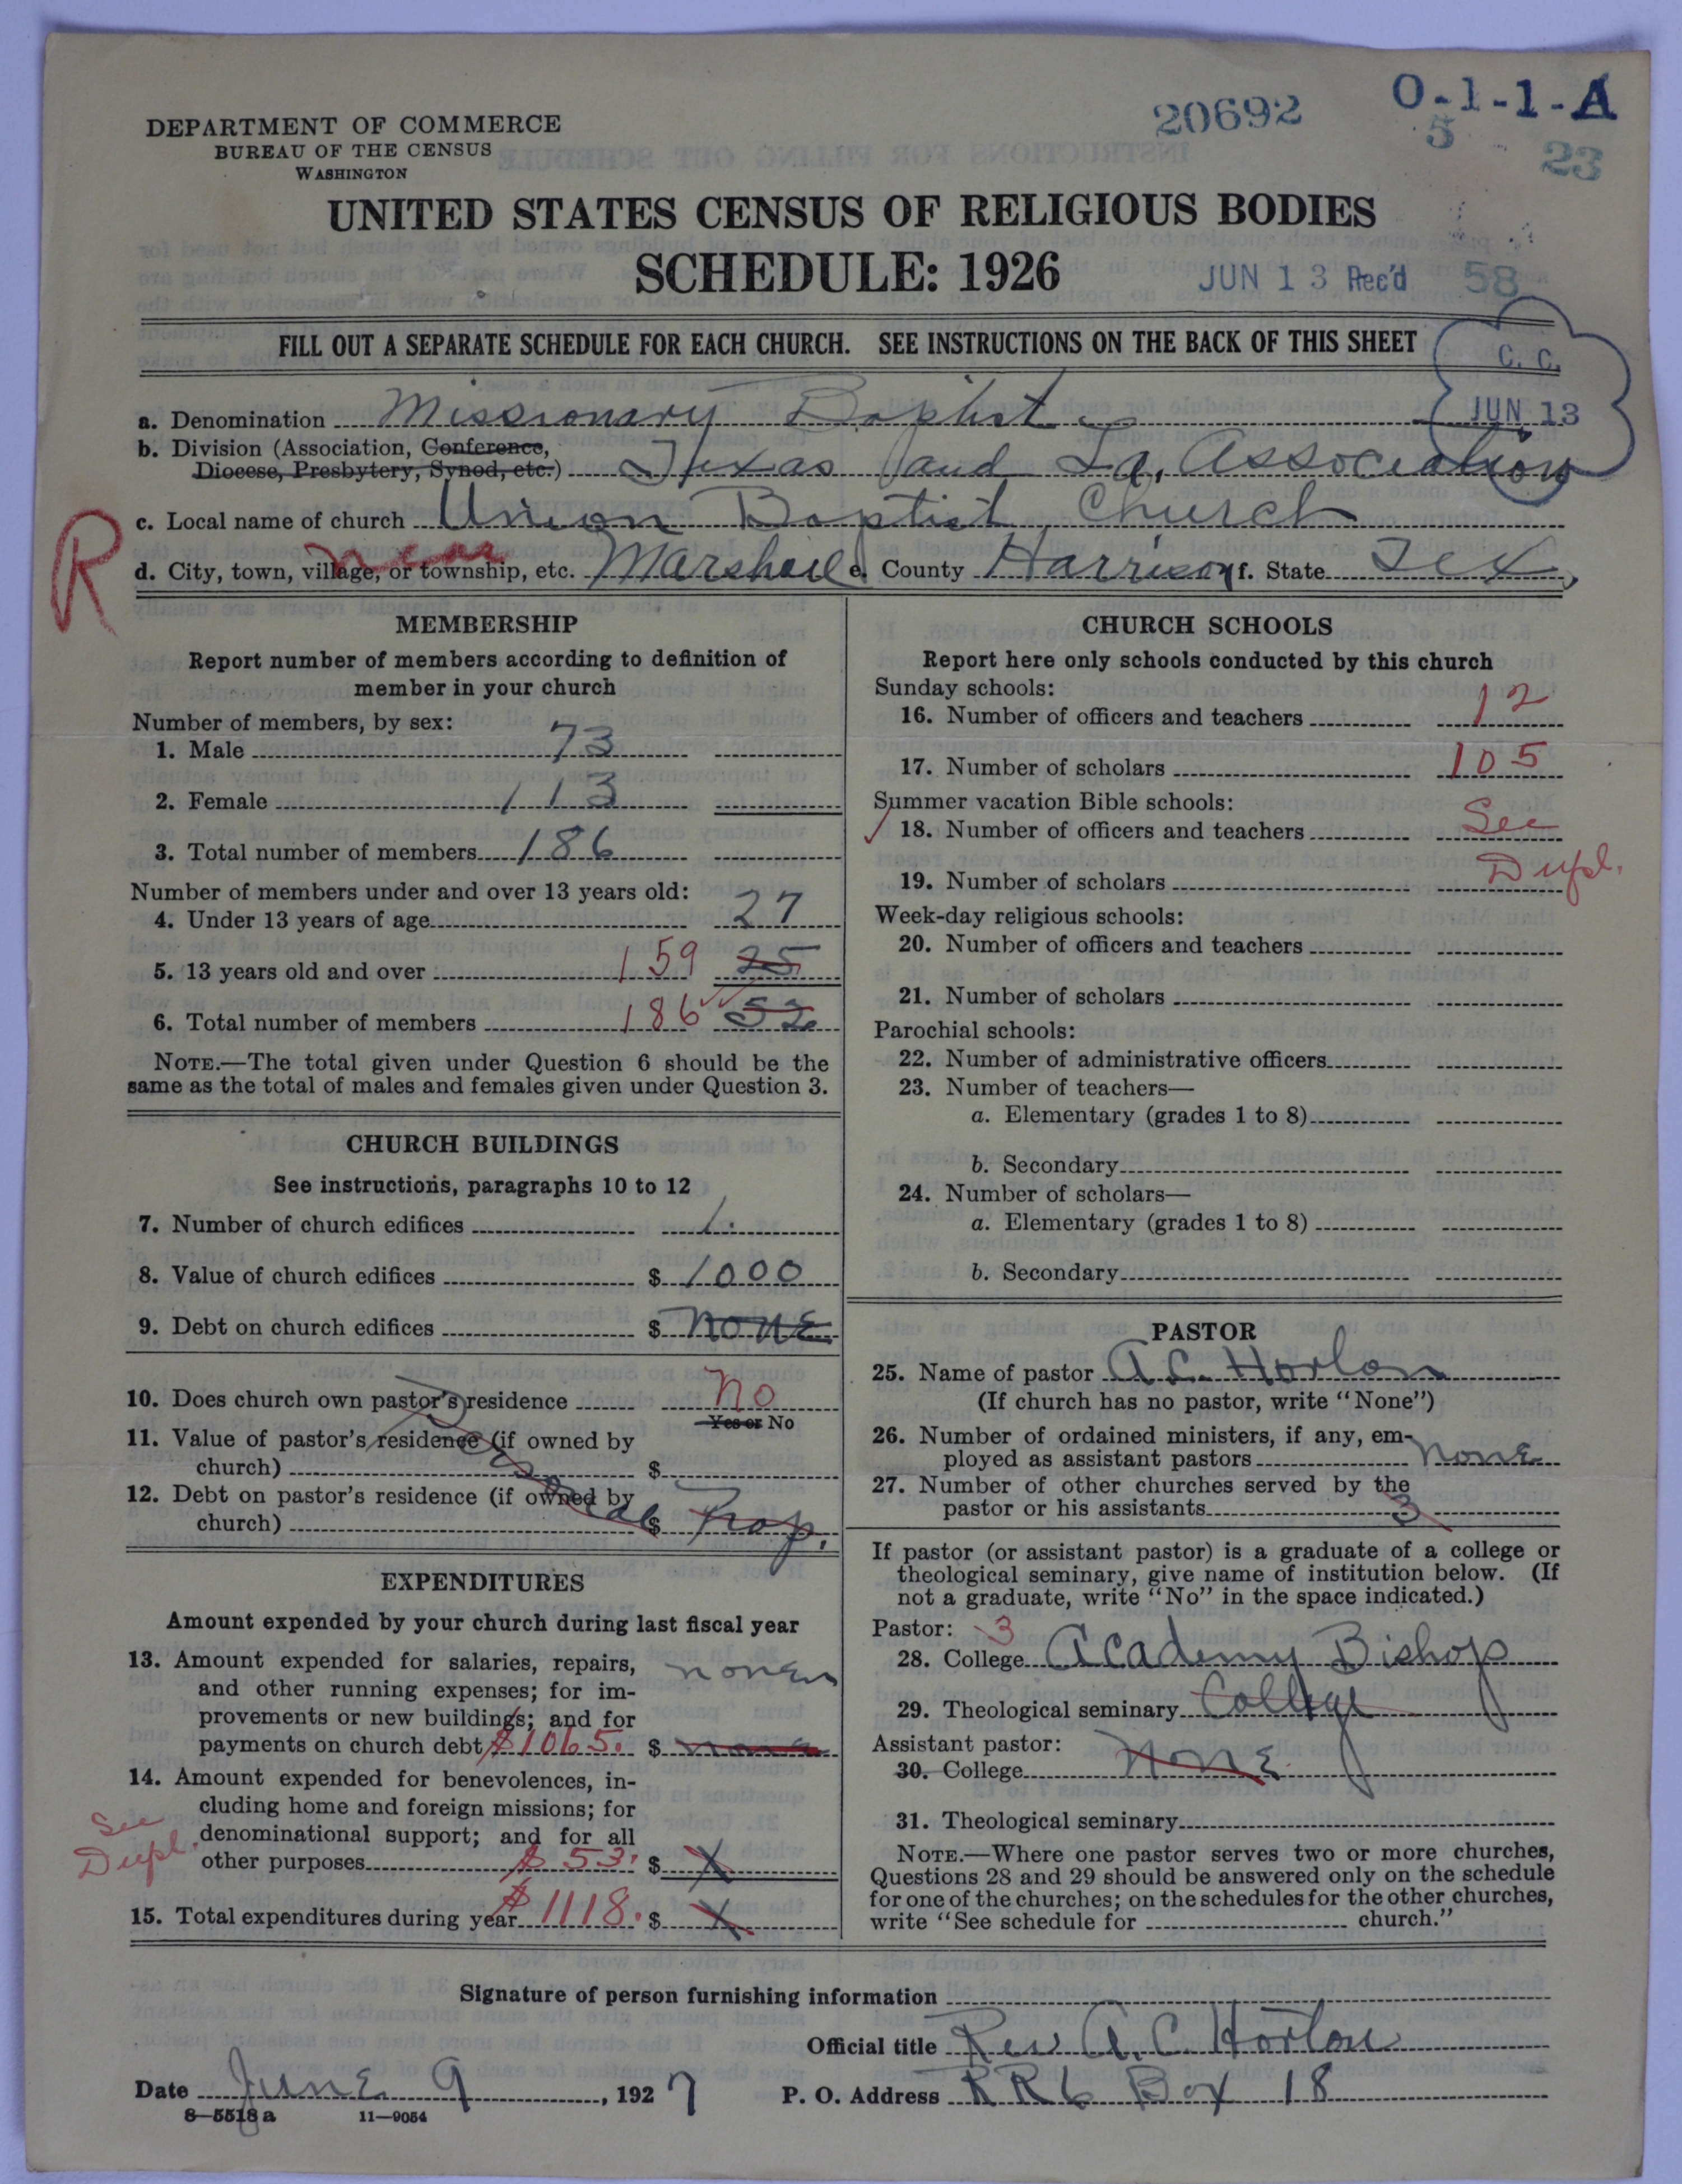 20692
O-1-1-A
5
23
DEPARTMENT OF COMMERCE
BUREAU OF THE CENSUS
WASHINGTON
UNITED STATES CENSUS OF RELIGIOUS BODIES
SCHEDULE: 1926
JUN 13 Rec'd
58
FILL OUT A SEPARATE SCHEDULE FOR EACH CHURCH. SEE INSTRUCTIONS ON THE BACK OF THIS SHEET
C. C.
JUN 13
a. Denomination Missionary Baptist
b. Division (Association, Conference,
Diocese, Presbytery, Synod, etc.) Texas and La. Association
c. Local name of church Union Baptist Church
R
near
d. City, town, village, or township, etc. Marshall e. County Harrison f. State Tex
MEMBERSHIP
Report number of members according to definition of
member in your church
Number of members, by sex:
1. Male 73
2. Female 113
3. Total number of members 186
Number of members under and over 13 years old:
4. Under 13 years of age 27
5. 13 years old and over 159 25
6. Total number of members 186 52
NOTE.—The total given under Question 6 should be the
same as the total of males and females given under Question 3.
CHURCH BUILDINGS
See instructions, paragraphs 10 to 12
7. Number of church edifices 1.
8. Value of church edifices $ 1000
9. Debt on church edifices $ NONE
10. Does church own pastor's residence No
Yes or No
11. Value of pastor's residence (if owned by
church) $
12. Debt on pastor's residence (if owned by
church) $
Personal Prop.
EXPENDITURES
Amount expended by your church during last fiscal year
13. Amount expended for salaries, repairs,
and other running expenses; for im-
provements or new buildings; and for
payments on church debt $1065. $ none
14. Amount expended for benevolences, in-
cluding home and foreign missions; for
denominational support; and for all
other purposes $ 53. $ X
See
Dupl.
15. Total expenditures during year $1118. $ X
CHURCH SCHOOLS
Report here only schools conducted by this church
Sunday schools:
16. Number of officers and teachers 12
17. Number of scholars 105
Summer vacation Bible schools:
18. Number of officers and teachers See
19. Number of scholars Dupl.
Week-day religious schools:
20. Number of officers and teachers
21. Number of scholars
Parochial schools:
22. Number of administrative officers
23. Number of teachers—
a. Elementary (grades 1 to 8)
b. Secondary
24. Number of scholars—
a. Elementary (grades 1 to 8)
b. Secondary
PASTOR
25. Name of pastor A. C. Horton
(If church has no pastor, write "None")
26. Number of ordained ministers, if any, em-
ployed as assistant pastors NONE
27. Number of other churches served by the
pastor or his assistants 3
If pastor (or assistant pastor) is a graduate of a college or
theological seminary, give name of institution below. (If
not a graduate, write "No" in the space indicated.)
Pastor: 3
28. College Academy Bishop
29. Theological seminary College
Assistant pastor:
30. College NONE
31. Theological seminary
NOTE.—Where one pastor serves two or more churches,
Questions 28 and 29 should be answered only on the schedule
for one of the churches; on the schedules for the other churches,
write "See schedule for church."
Signature of person furnishing information
Official title Rev A. C. Horton
Date June 9, 1927 P. O. Address R R 6 Box 18
8—5518 a 11—9054